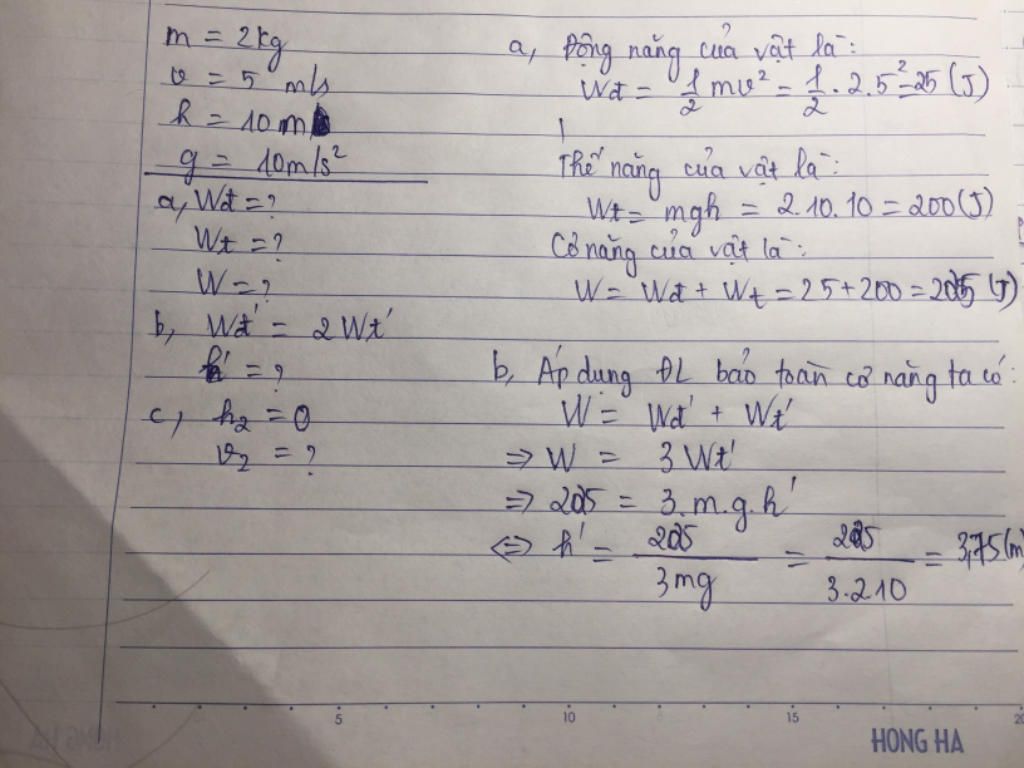 m = 2kg
v = 5 m/s
h = 10m
g = 10m/s²
a, Wđ = ?
Wt = ?
W = ?
b, Wđ' = 2Wt'
h' = ?
c, h₂ = 0
v₂ = ?
a, Động năng của vật là:
Wđ = 1/2 mv² = 1/2 . 2.5² = 25 (J)
Thế năng của vật là:
Wt = mgh = 2.10.10 = 200 (J)
Cơ năng của vật là:
W = Wđ + Wt = 25 + 200 = 225 (J)
b, Áp dụng ĐL bảo toàn cơ năng ta có:
W = Wđ' + Wt'
⇒ W = 3Wt'
⇒ 225 = 3.m.g.h'
⇔ h' = 225/3mg = 225/3.2.10 = 3,75 (m)
5 10 15 20
HONG HA